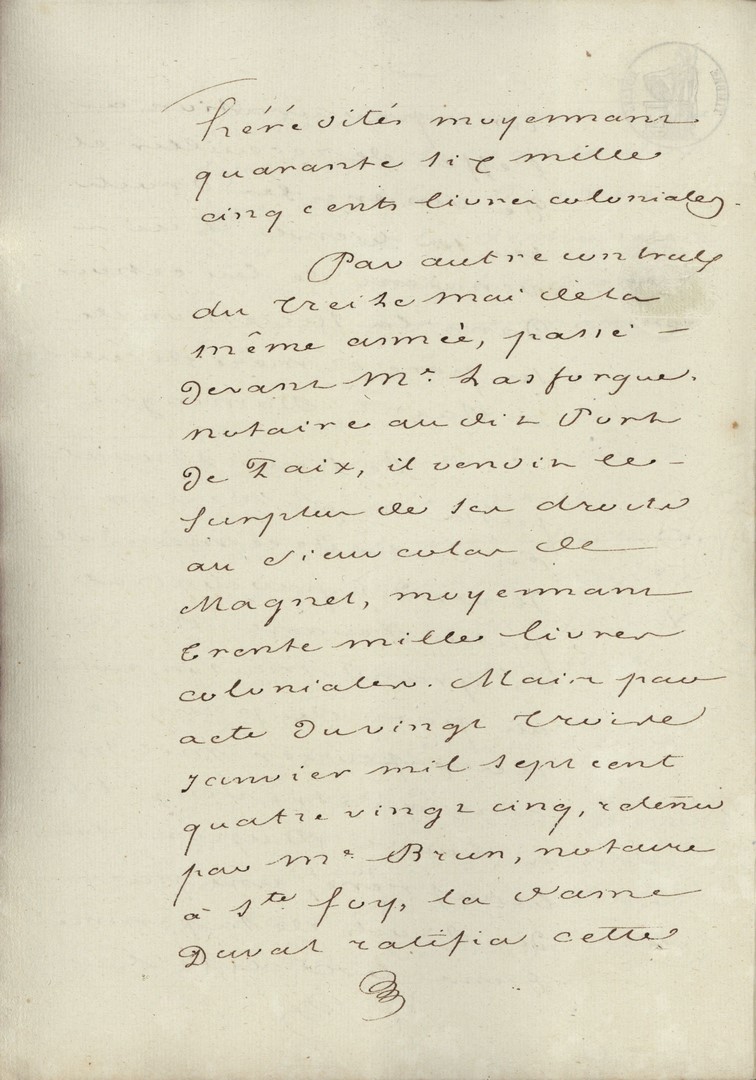 hérédités moyennant
quarante six mille
cinq cents livres coloniales.
Par autre contrat
du treize mai de la
même année, passé
devant Me. Lasforgue,
notaire au dit Port
de Paix, il vendit le
surplus de ses droits
au sieur colas de
Magnet, moyennant
trente mille livres
coloniales. Mais par
acte du vingt trois
janvier mil sept cent
quatre vingt cinq, retenu
par Me Brun, notaire
à Ste foy, la dame
Duval ratifia cette